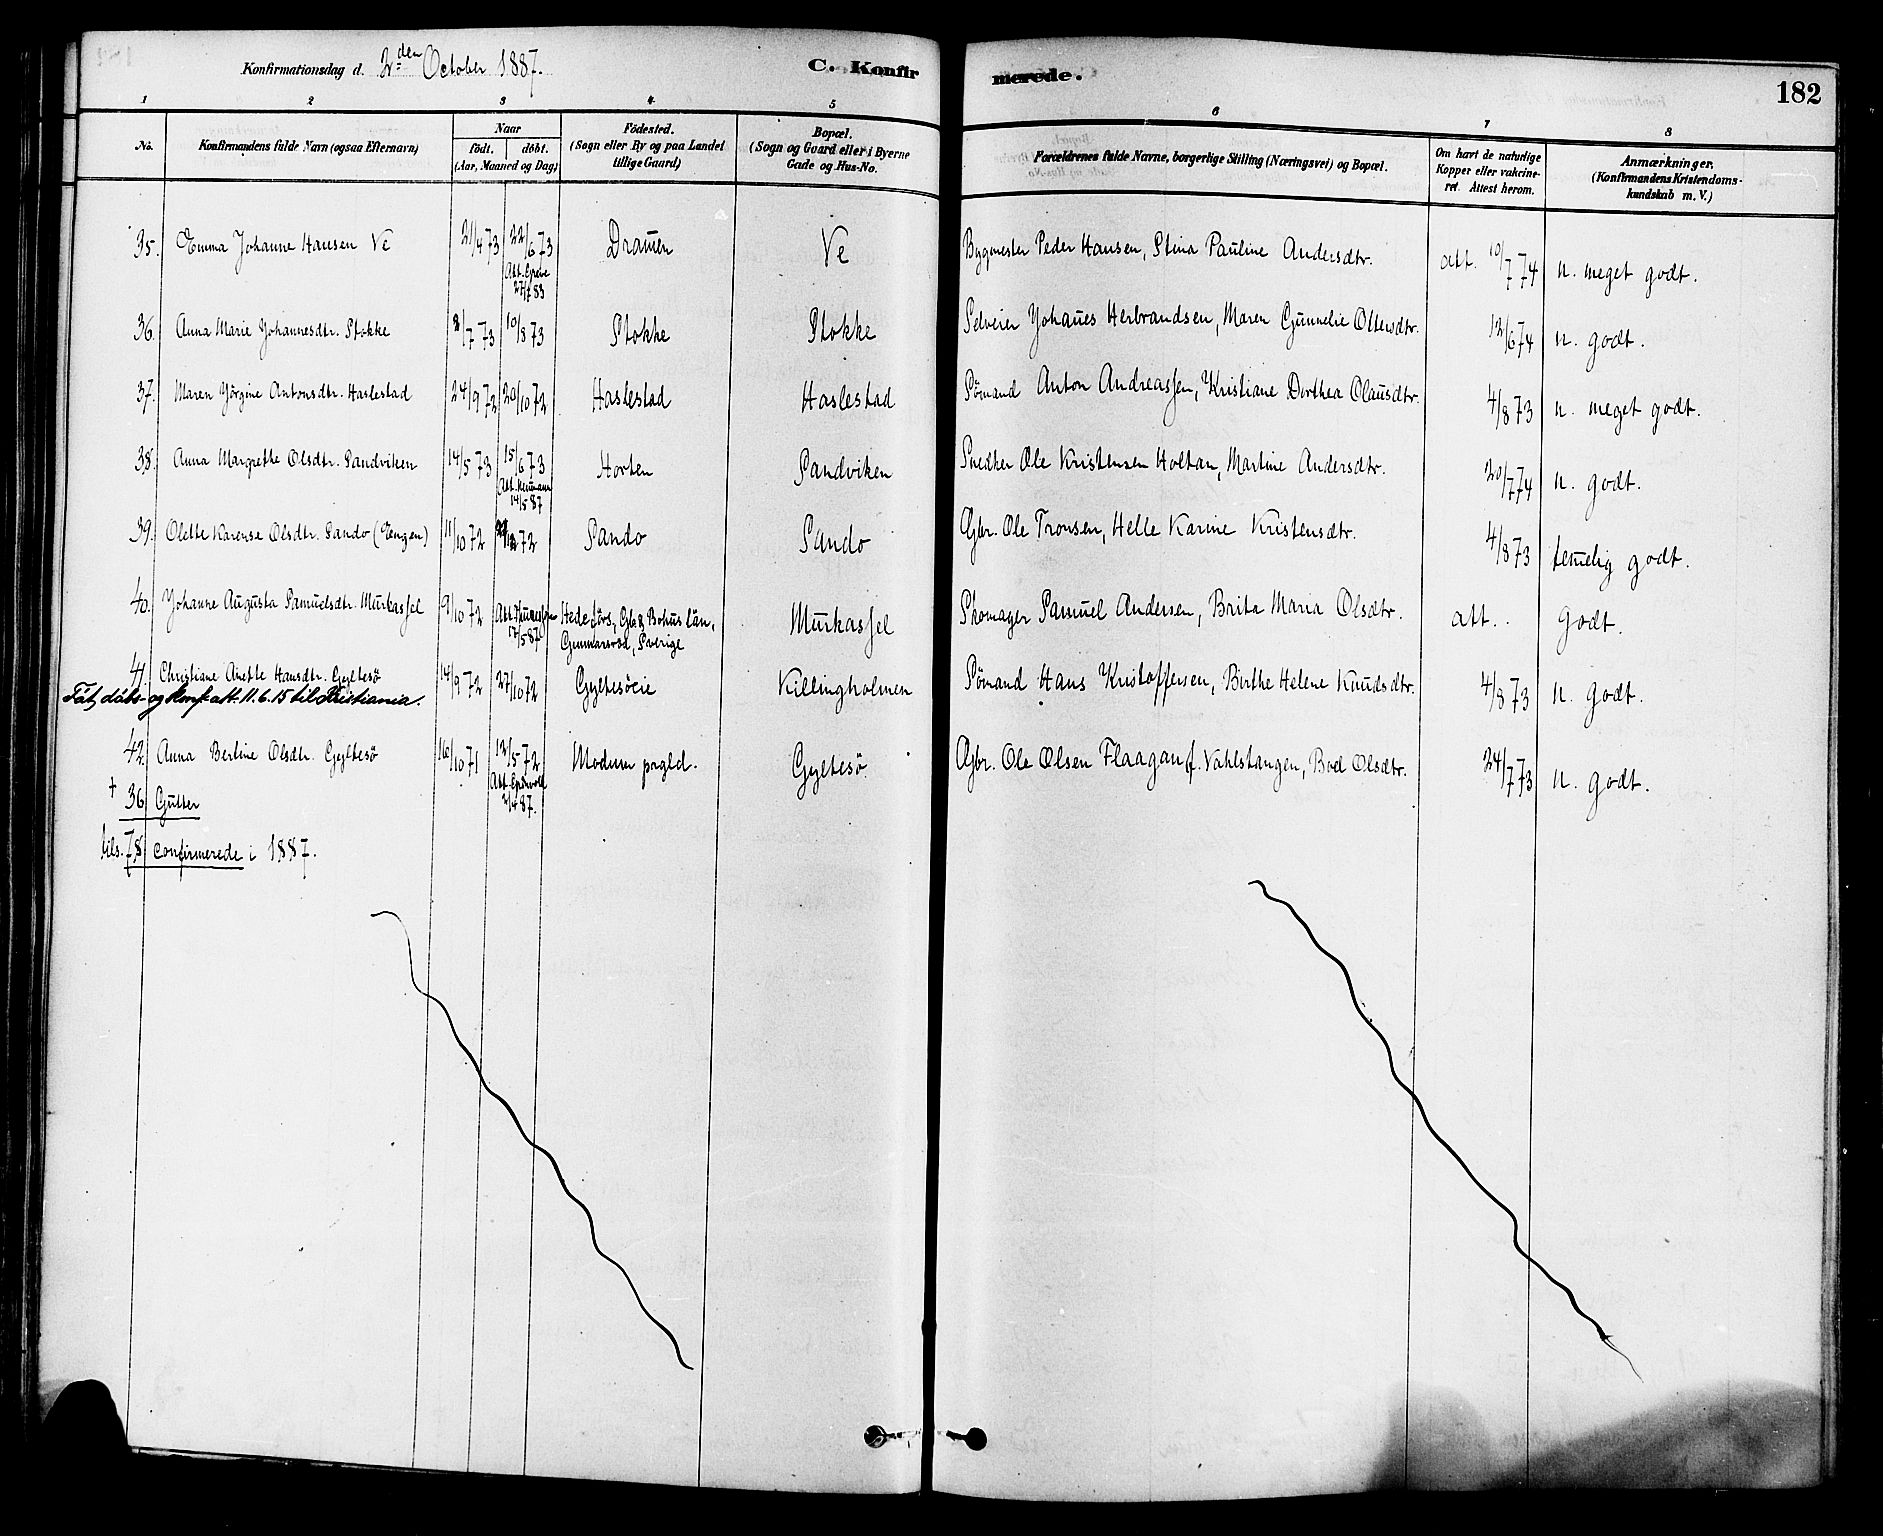 Konfirmationsdag d. 2den October 1887. C. Konfirmerede. 182
1 2 3 4 5 6 7 8
No. Konfirmandens fulde Navn (ogsaa Efternavn) Naar födt. döbt. (Aar, Maaned og Dag) Födested. (Sogn eller By og paa Landet tillige Gaard) Bopæl. (Sogn og Gaard eller i Byerne Gade og Hus-No. Forældrenes fulde Navne, borgerlige Stilling (Næringsvei) og Bopæl. Om havt de naturlige Kopper eller vakcineret. Attest herom. Anmærkninger. (Konfirmandens Kristendomskundskab m. V.)
35. Emma Johanne Hansen Ve 21/4 73 22/6 73 Dramen Ve Bygmester Peder Hansen, Stina Pauline Andersdtr. att. 10/7 74 n. meget godt.
Att. Greve 27/7 83
36. Anna Marie Johannesdtr. Stokke 8/7 73 10/8 73 Stokke Stokke Selveier Johanes Herbrandsen, Maren Gunnelie Ottersdtr. 12/6 74 n. godt.
37. Maren Jörgine Antonsdtr. Haslestad 24/9 72 20/10 72 Haslestad Haslestad Sömand Anton Andreassen, Kristiane Dorthea Olausdtr. 4/8 73 n. meget godt.
38. Anna Margrethe Olsdtr. Sandviken 14/5 73 15/6 73 Horten Sandviken Snedker Ole Kristensen Holtan, Martine Andersdtr. 20/7 74 n. godt.
Att. Neumann 14/5 87
39. Olette Karense Olsdtr. Sando (Engen) 11/10 72 72 Sando Sando Gbr. Ole Tronsen, Helle Karine Kristensdtr. 4/8 73 temelig godt.
40. Johanne Augusta Samuelsdtr. Murkassel 9/10 72 Att. 17/5 87 Hede Görs., Gbg & Bohus län, Murkassel Skomager Samuel Andersen, Brita Maria Olsdtr. att. . Godt.
Gunnarsröd, Sverige
41. Christiane Anette Hansdtr. Gyltesö 14/9 72 27/10 72 Gyltesöeie Killingholmen Sömand Hans Kristoffersen, Birthe Helene Knudsdtr. 4/8 73 n. godt.
Fåt dåbs- og konf. att. 11.6.15 til Kristiania.
42. Anna Bertine Olsdtr. Gyltesö 16/10 71 12/5 72 Modum prgld. Gyltesö Gbr. Ole Olsen Flaagan f. Vahlstangen, Boel Olsdtr. 24/7 73 n. godt.
Att. 2/4 87.
+ 36 Gutter
tils. 78 confirmerede i 1887.